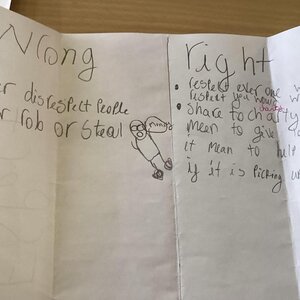 Wrong
er disrespect people
er rob or steal
money
right
respect ever one
respect you
share to charity
mean to give
it mean to help
if it is picking